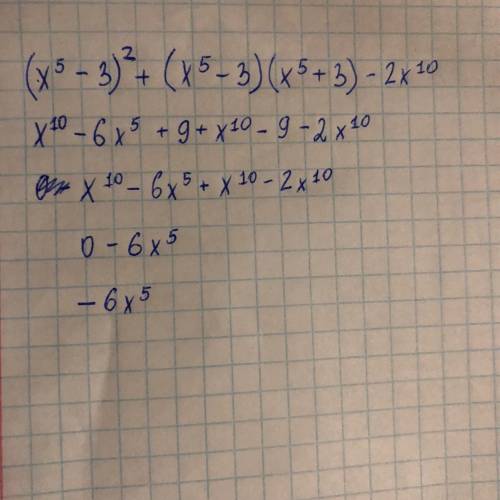 (x⁵ - 3)² + (x⁵ - 3)(x⁵ + 3) - 2x¹⁰
x¹⁰ - 6x⁵ + 9 + x¹⁰ - 9 - 2x¹⁰
x¹⁰ - 6x⁵ + x¹⁰ - 2x¹⁰
0 - 6x⁵
- 6x⁵